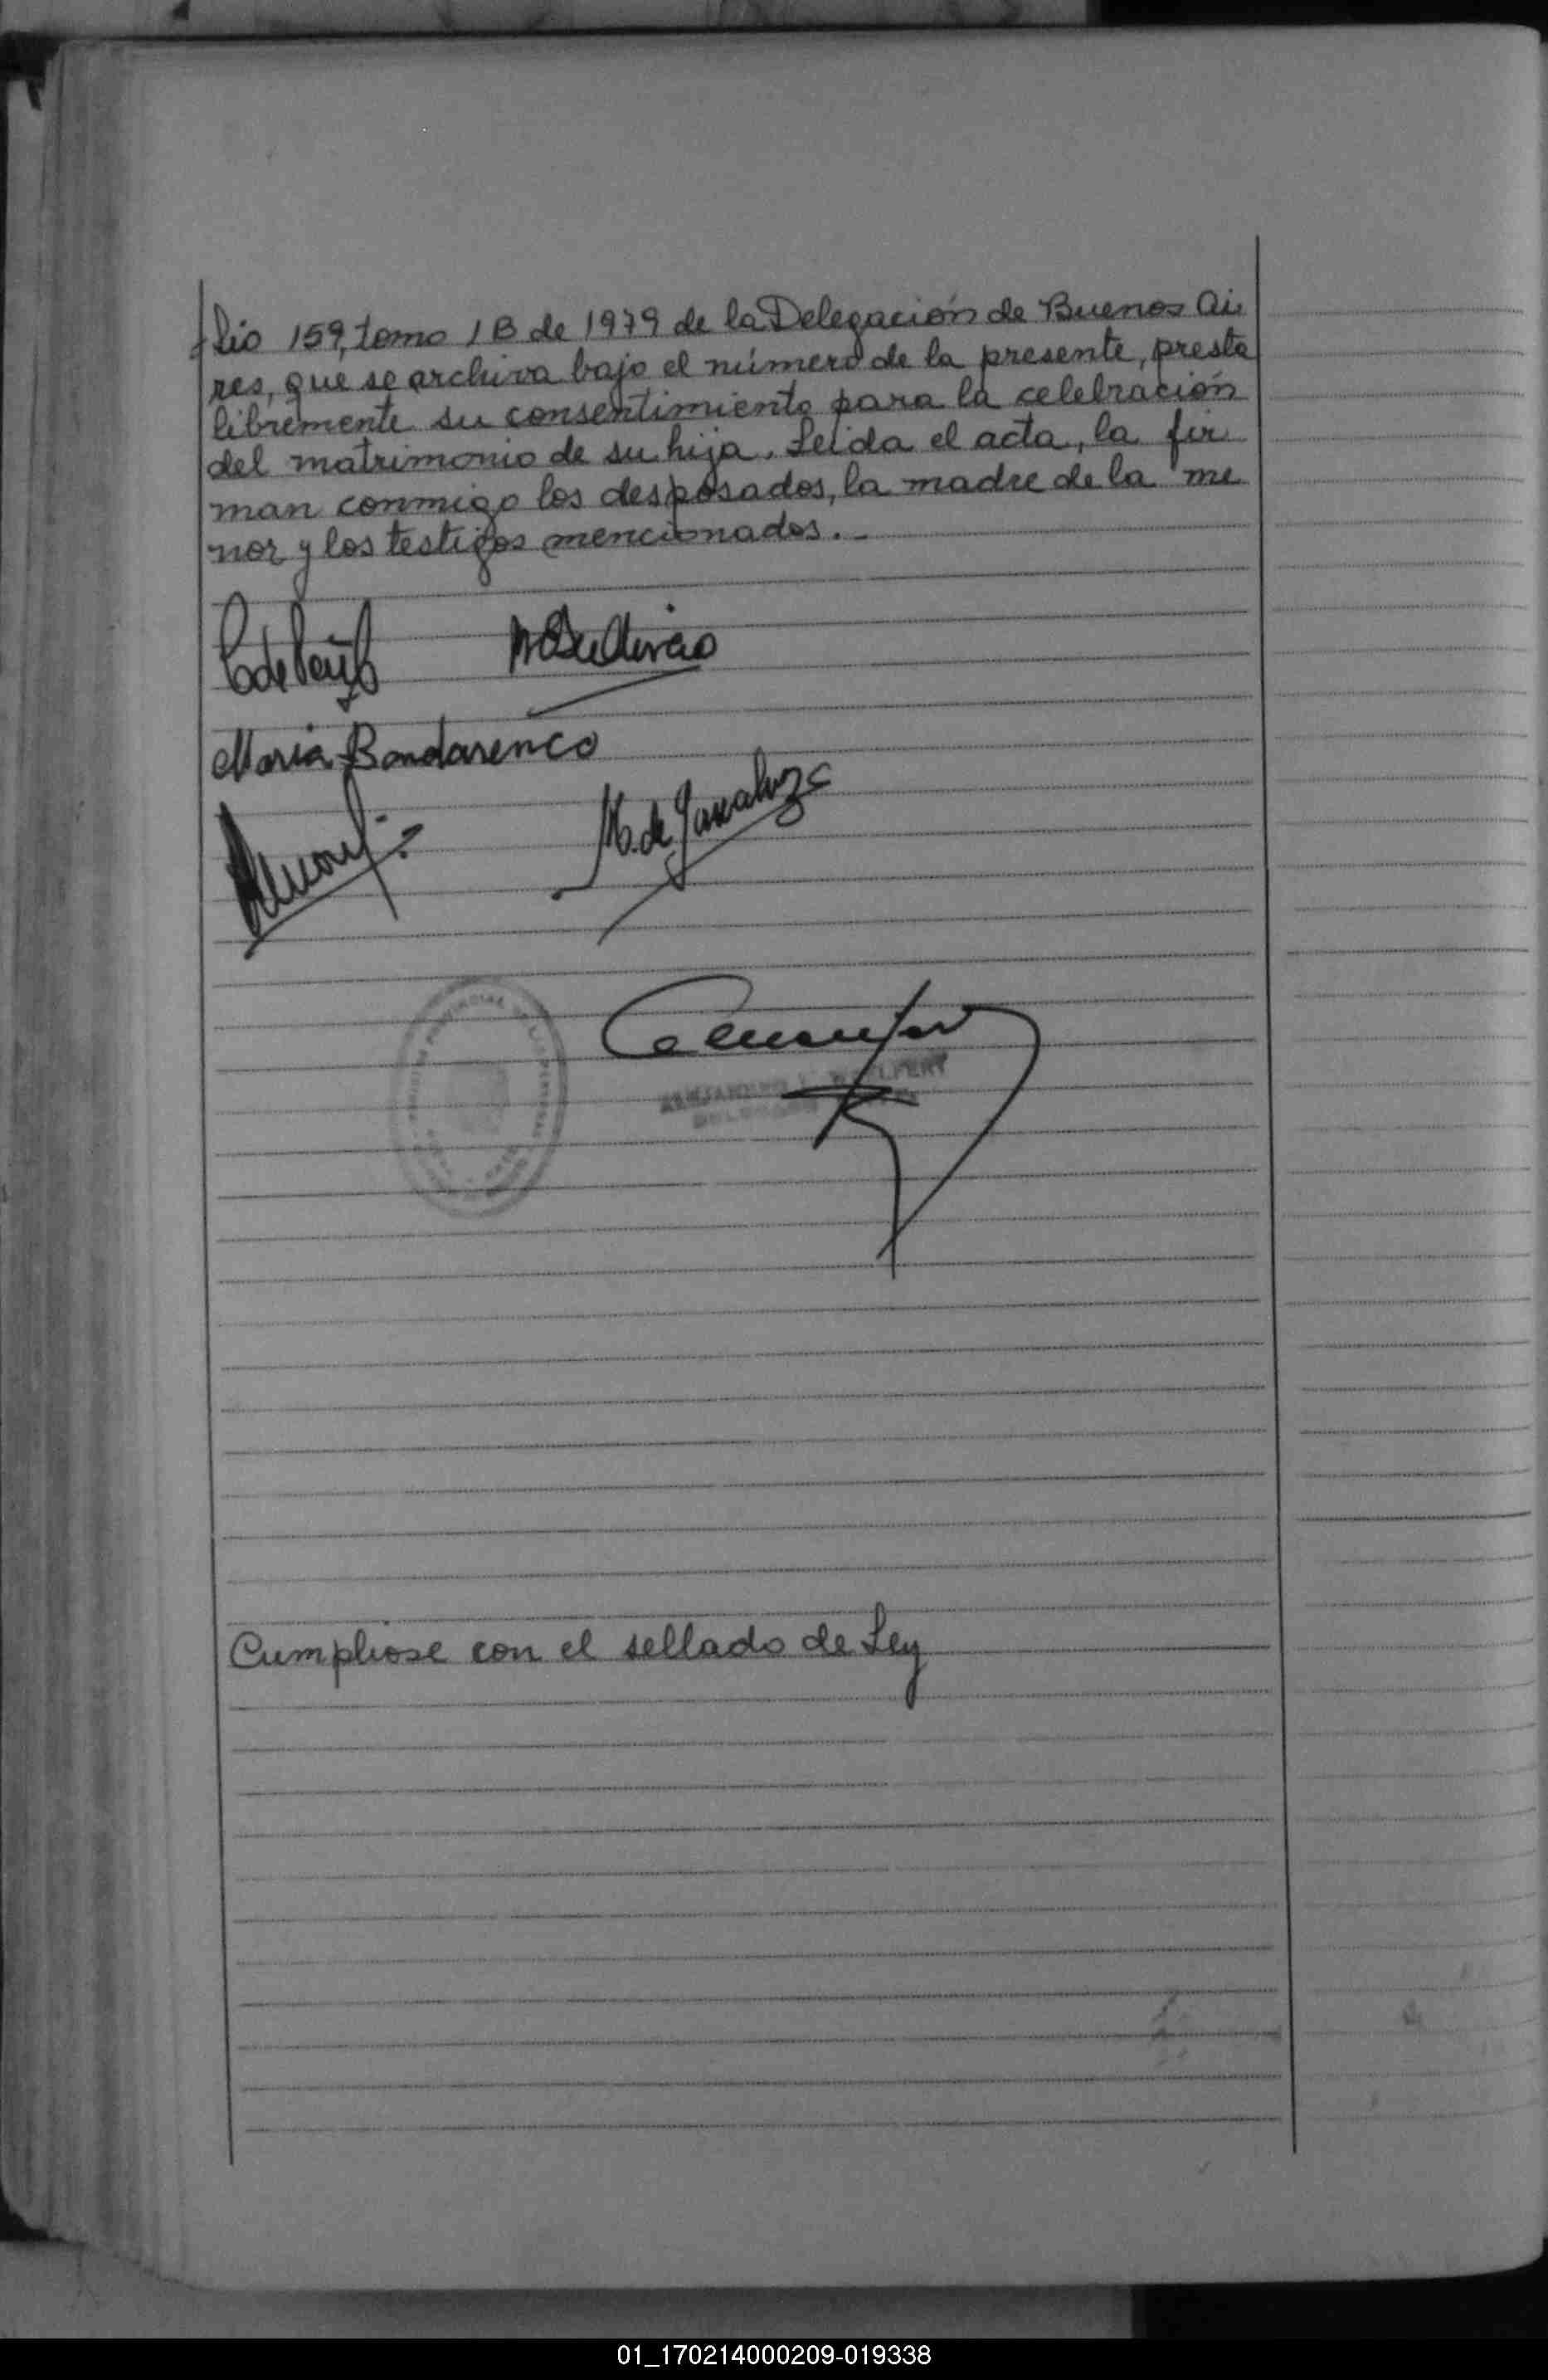 lio 159, tomo 1B de 1979 de la Delegación de Buenos Ai
res, que se archiva bajo el número de la presente, presta
libremente su consentimiento para la celebración
del matrimonio de su hija. Leida el acta, la fir
man conmigo los desposados, la madre de la me
nor y los testigos mencionados.-
Maria Bondarenco
M. de
Cumpliose con el sellado de Ley
01_170214000209-019338